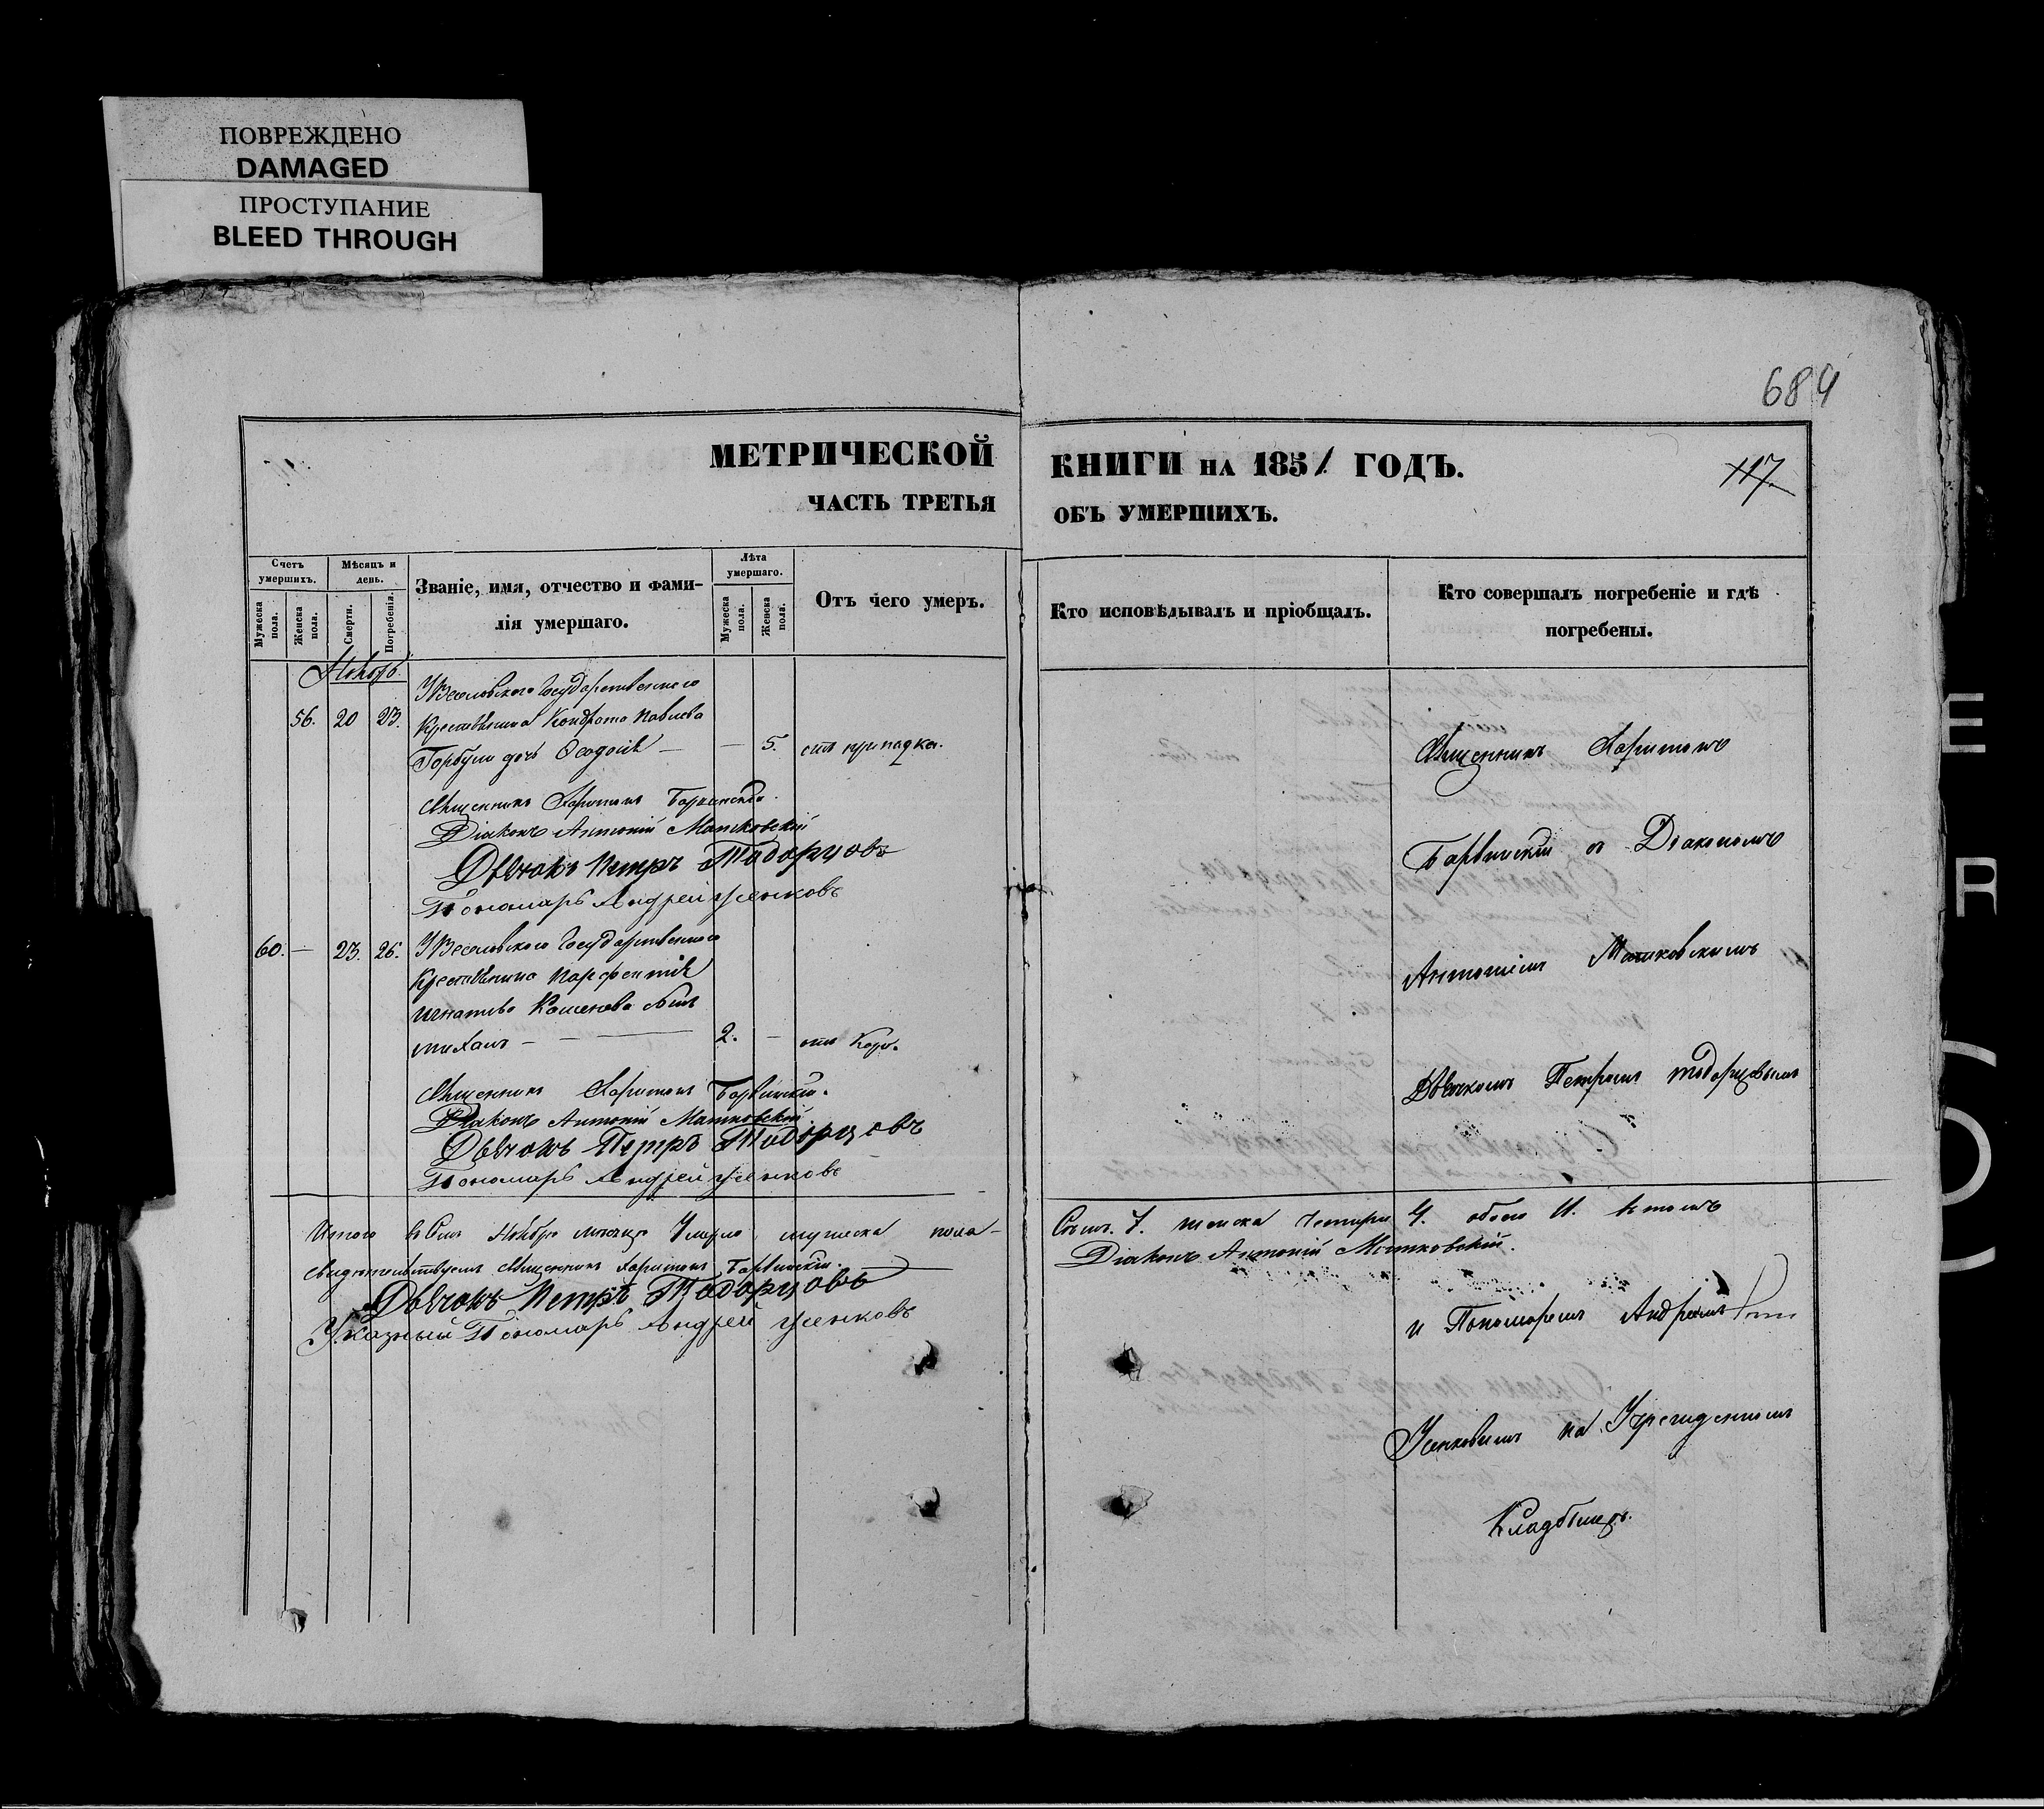 ПОВРЕЖДЕНО
DAMAGED
ПРОСТУПАНИЕ
BLEED THROUGH
684
МЕТРИЧЕСКОЙ КНИГИ НА 1851 ГОДЪ.
117.
ЧАСТЬ ТРЕТЬЯ ОБЪ УМЕРШИХЪ.
Счетъ умершихъ.
Мѣсяцъ и день.
Званіе, имя, отчество и фамилія умершаго.
Лѣта умершаго.
Отъ чего умеръ.
Кто исповѣдывалъ и пріобщалъ.
Кто совершалъ погребеніе и гдѣ погребены.
Мужеска пола.
Женска пола.
Смерти.
Погребенія.
Мужеска пола.
Женска пола.
Ноябрь.
Государственнаго
56. 20 23. Крестьянина Кондрата Павлова
дочь Ѳеодосія — — 5. отъ припадка.
Священникъ Харитонъ Барвинскій
Діаконъ Антоній Матковскій
Дьячокъ Петръ Тодорцовъ
Пономарь Андрей Усенковъ
60. — 23. 26. Государственнаго
Крестьянина Парфентія
сынъ
2. — отъ Кори.
Священникъ Харитонъ Барвинскій.
Діаконъ Антоній Матковскій
Дьячокъ Петръ Тодорцовъ
Пономарь Андрей Усенковъ
Священникъ Харитонъ
Барвинскій съ Діакономъ
Антоніемъ Матковскимъ
Дьячкомъ Петромъ Тодорцовымъ
и Пономаремъ Андреемъ
Усенковымъ на Учрежденномъ
Кладбищѣ.
Итого въ Семъ Ноябрѣ месяце Умерло мужеска пола — Семь 7. женска четыри 4. обоего 11. въ томъ
свидетельствуемъ Священникъ Харитонъ Барвинскій. Діаконъ Антоній Матковскій.
Дьячокъ Петръ Тодорцовъ
Указный Пономарь Андрей Усенковъ